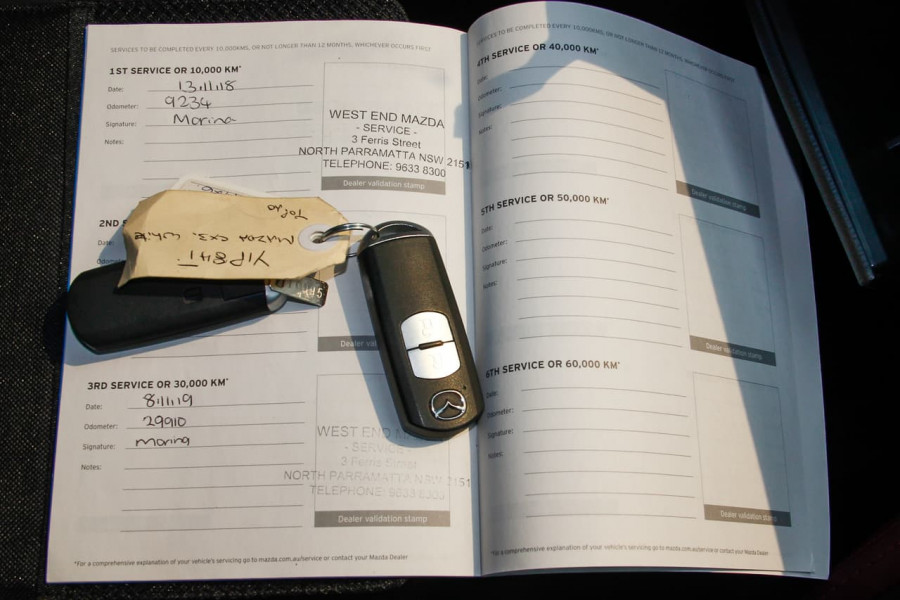 SERVICES TO BE COMPLETED EVERY 10,000KMS, OR NOT LONGER THAN 12 MONTHS, WHICHEVER OCCURS FIRST
1ST SERVICE OR 10,000 KM*
Date: 13/11/18
Odometer: 9234
Signature: Morina
Notes:
WEST END MAZDA
- SERVICE -
3 Ferris Street
NORTH PARRAMATTA NSW 2151
TELEPHONE: 9633 8300
Dealer validation stamp
2ND
Date:
YIP84T
MAZDA CX3. White
Dealer
3RD SERVICE OR 30,000 KM*
Date: 8/11/19
Odometer: 29910
Signature: Morina
Notes:
WEST END
- SERVICE -
3 Ferris Street
NORTH PARRAMATTA NSW 2151
TELEPHONE: 9633 8300
Dealer validation stamp
*For a comprehensive explanation of your vehicle's servicing go to mazda.com.au/service or contact your Mazda Dealer
SERVICES TO BE COMPLETED EVERY 10,000KMS, OR NOT LONGER THAN 12 MONTHS, WHICHEVER OCCURS FIRST
4TH SERVICE OR 40,000 KM*
Date:
Odometer:
Signature:
Notes:
Dealer validation stamp
5TH SERVICE OR 50,000 KM*
Date:
Odometer:
Signature:
Notes:
Dealer validation stamp
6TH SERVICE OR 60,000 KM*
Date:
Odometer:
Signature:
Notes:
Dealer validation stamp
*For a comprehensive explanation of your vehicle's servicing go to mazda.com.au/service or contact your Mazda Dealer